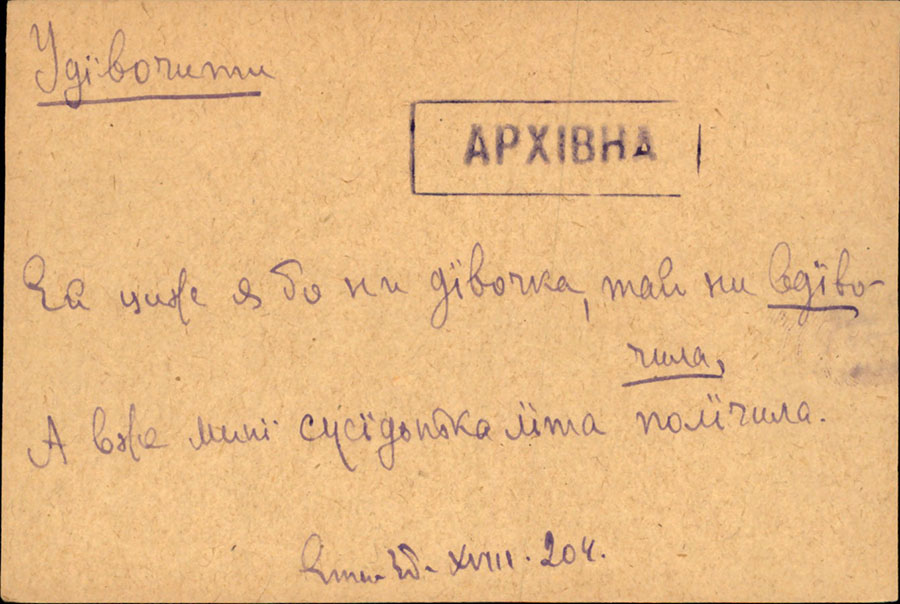 Удївочити
АРХІВНА
Ей ци же я бо ни дївочка, тай ни вдїво-
чила,
А вже мині сусїдонька лїта полїчила.
Етн. Зб. XVIII. 204.